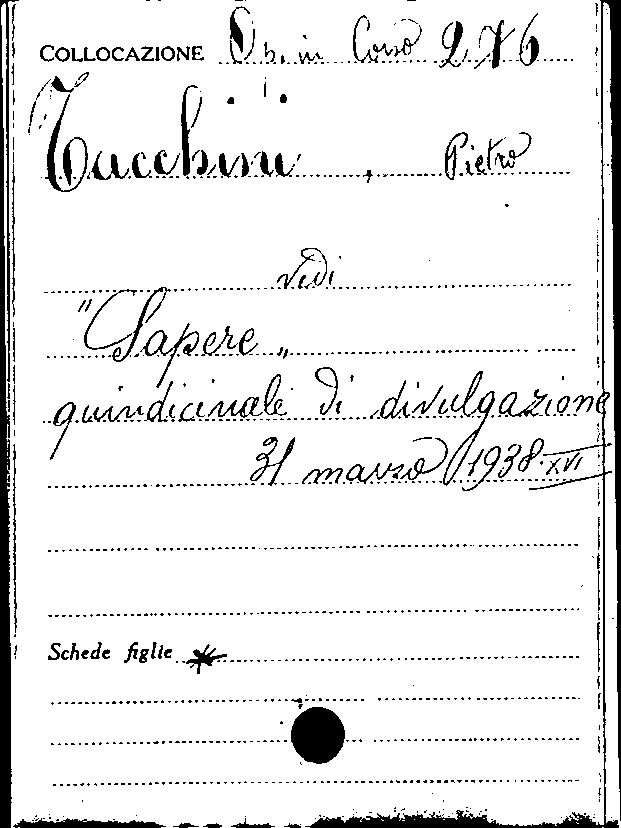 COLLOCAZIONE Op. in Corso 276
Tacchini, Pietro
vedi
"Sapere„
quindicinale di divulgazione
31 marzo 1938.XVI
Schede figlie